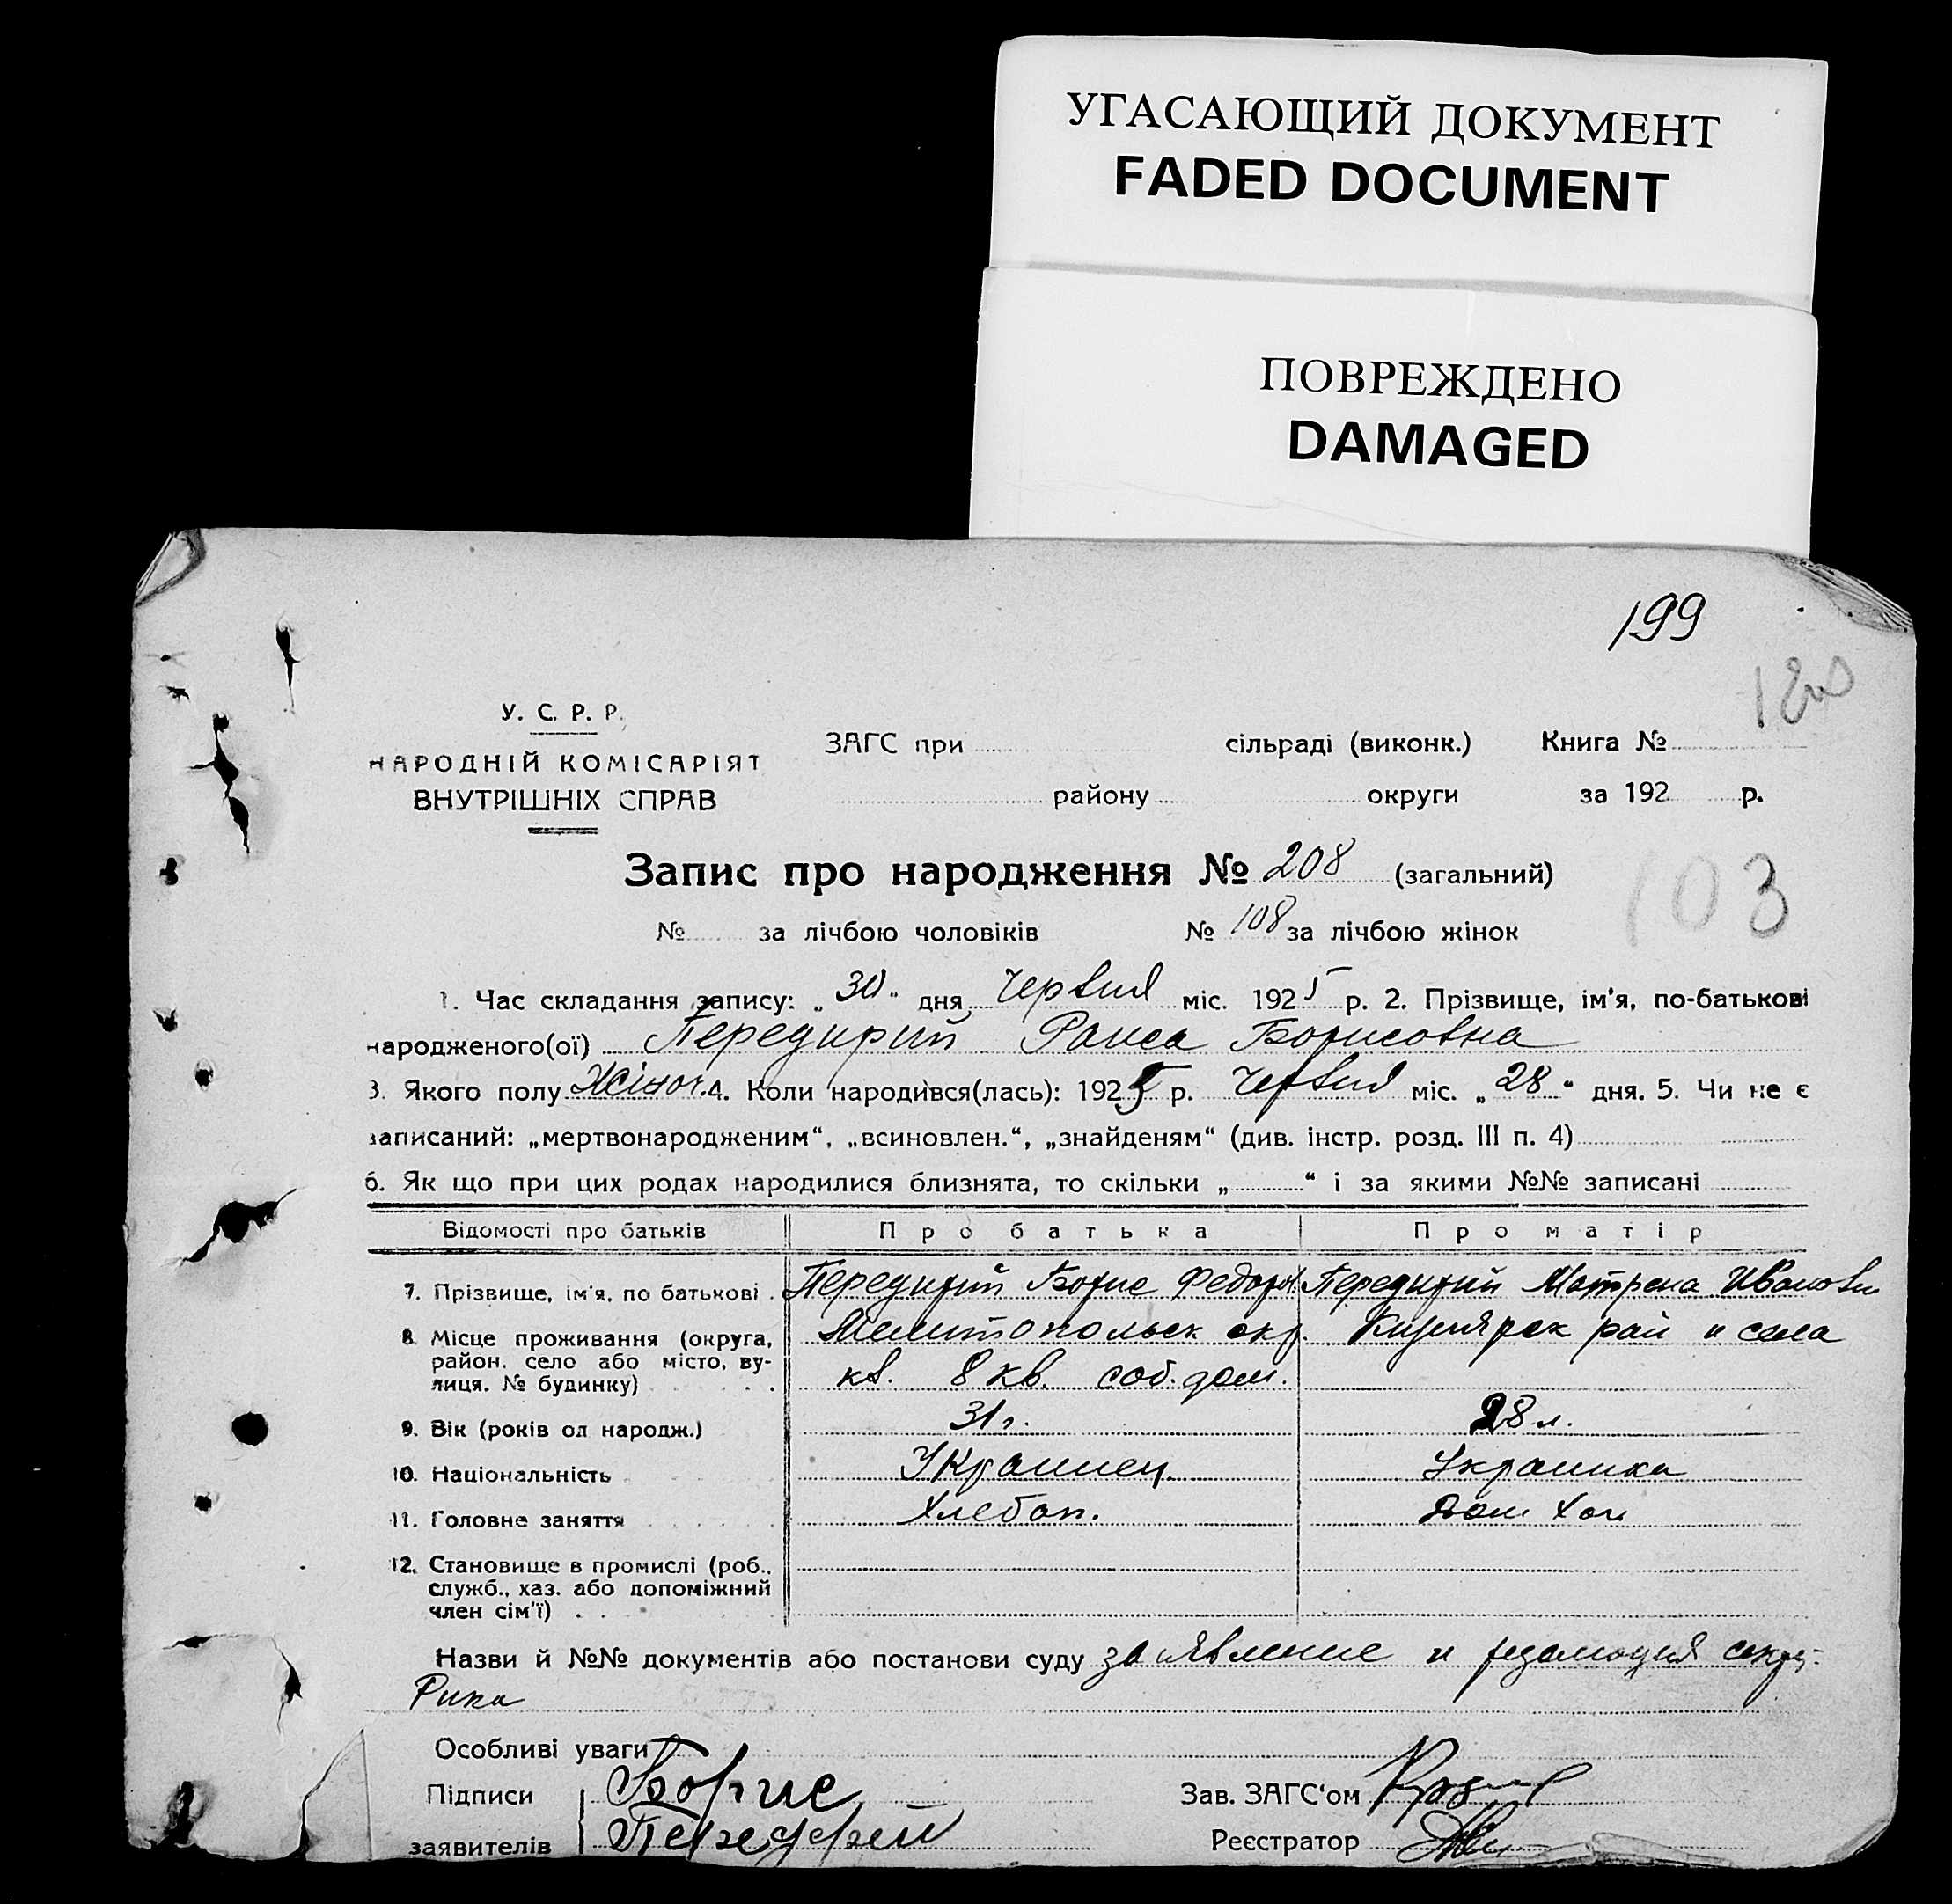 УГАСАЮЩИЙ ДОКУМЕНТ
FADED DOCUMENT
ПОВРЕЖДЕНО
DAMAGED
199
У. С. Р. Р.
НАРОДНІЙ КОМІСАРІЯТ
ВНУТРІШНІХ СПРАВ
ЗАГС при сільраді (виконк.) Книга №
району округи за 192 р.
Запис про народження № 208 (загальний)
103
№ за лічбою чоловіків № 108 за лічбою жінок
1. Час складання запису: „30“ дня Червня міс. 1925 р. 2. Прізвище, ім'я, по-батькові
народженого(ої) Передирий Раиса Борисовна
3. Якого полу Жіноч. 4. Коли народився(лась): 1925 р. Червня міс. „28“ дня. 5. Чи не є
записаний: „мертвонародженим“, „всиновлен.“, „знайденям“ (див. інстр. розд. III п. 4)
6. Як що при цих родах народилися близнята, то скільки „ “ і за якими №№ записані
Відомості про батьків Про батька Про матір
7. Прізвище, ім'я, по батькові Передирий Борис Федоров Передирий Матрена Ивановн
8. Місце проживання (округа, район, село або місто, вулиця, № будинку) Мелитопольск окр. рай и села
кв. 8 кв. соб. дом.
9. Вік (років од народж.) 31 г. 28 л.
10. Національність Украинец Украинка
11. Головне заняття Хлебоп. Дом Хоз
12. Становище в промислі (роб., служб., хаз. або допоміжний член сім'ї)
Назви й №№ документів або постанови суду заявление и резолюция секр.
Рика
Особливі уваги
Підписи Борис Зав. ЗАГС'ом
заявителів Передрий Реєстратор